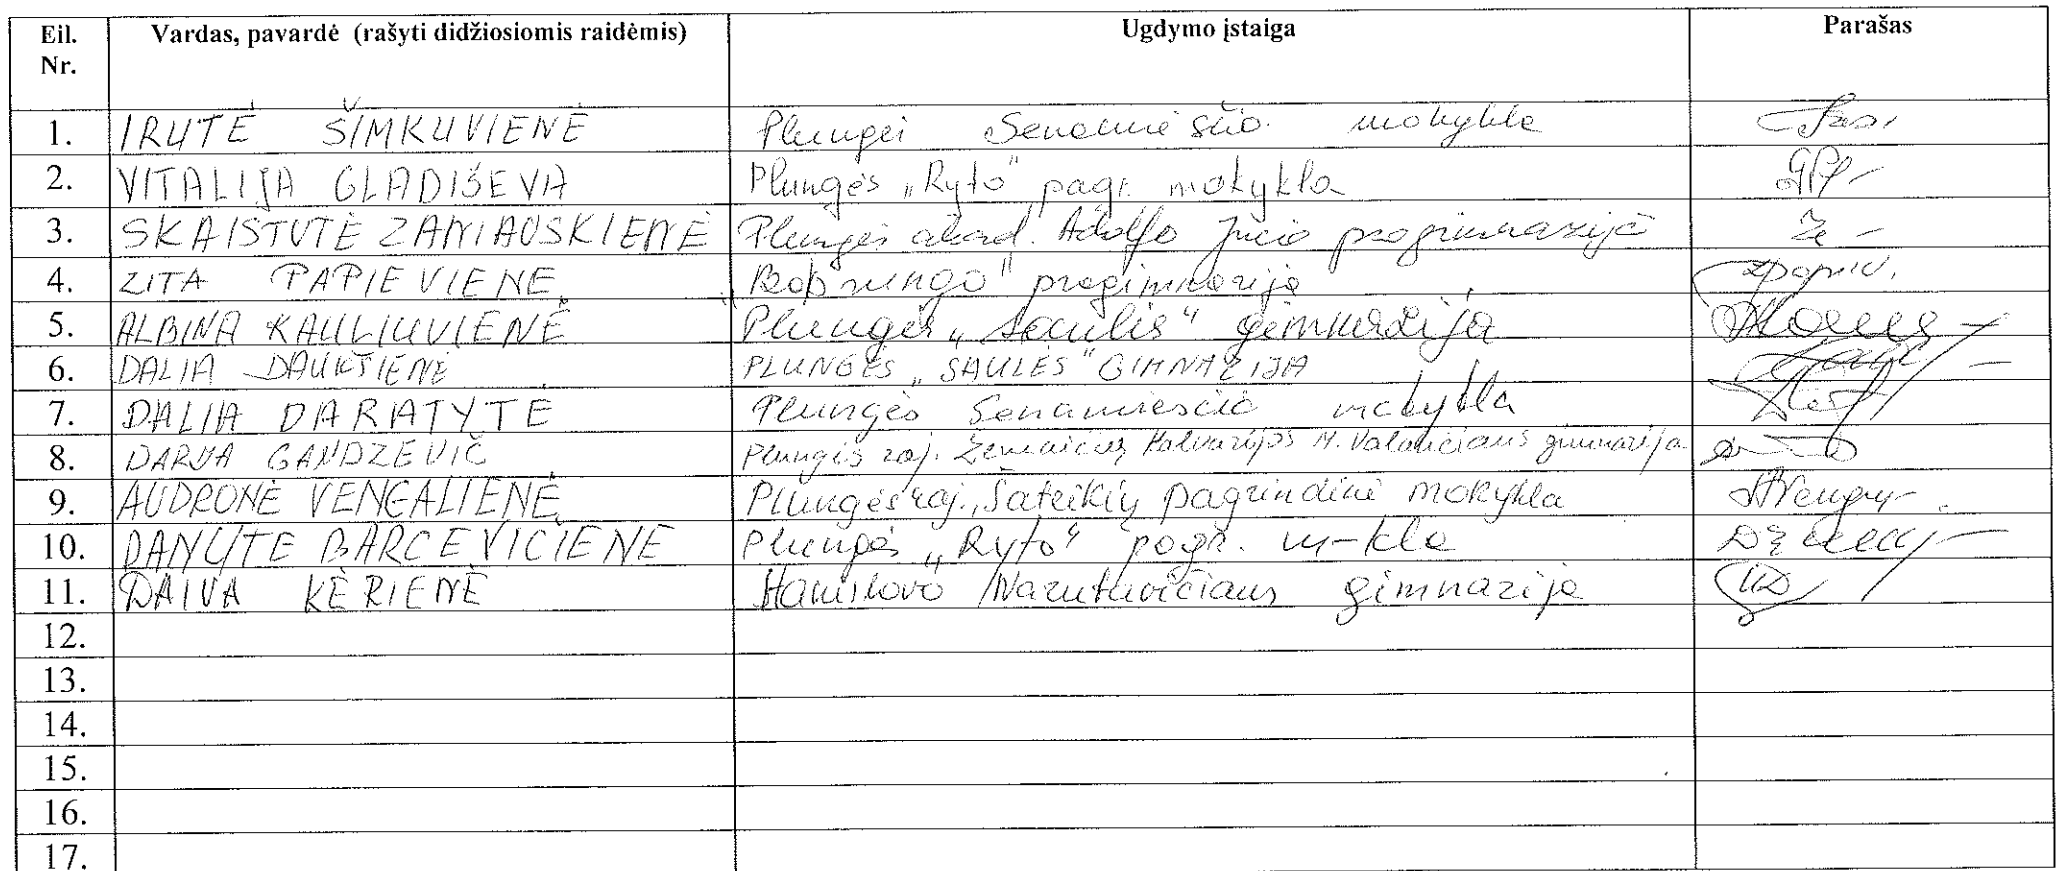 Eil. Nr. Vardas, pavardė (rašyti didžiosiomis raidėmis) Ugdymo įstaiga Parašas
1. IRUTĖ ŠIMKUVIENĖ Plungės Senamiesčio mokykla
2. VITALIJA GLADIŠEVA Plungės „Ryto" pagr. mokykla
3. SKAISTUTĖ ZANIAUSKIENĖ Plungės akad. Adolfo Jucio progimnazija
4. ZITA PAPIEVIENĖ progimnazija
5. ALBINA KAULIUVIENĖ Plungės „Saulės" gimnazija
6. DALIA DAUKTIENĖ PLUNGĖS „SAULĖS" GIMNAZIJA
7. DALIA DARATYTĖ Plungės Senamiesčio mokykla
8. DARJA GANDZEVIČ Plungės raj. Žemaičių Kalvarijos M. Valančiaus gimnazija
9. AUDRONĖ VENGALIENĖ Plungės raj. Šateikių pagrindinė mokykla
10. DANUTE BARCEVICIENE Plungės „Ryto" pagr. m-kla
11. DAIVA KĖRIENĖ Narutavičiaus gimnazija
12.
13.
14.
15.
16.
17.